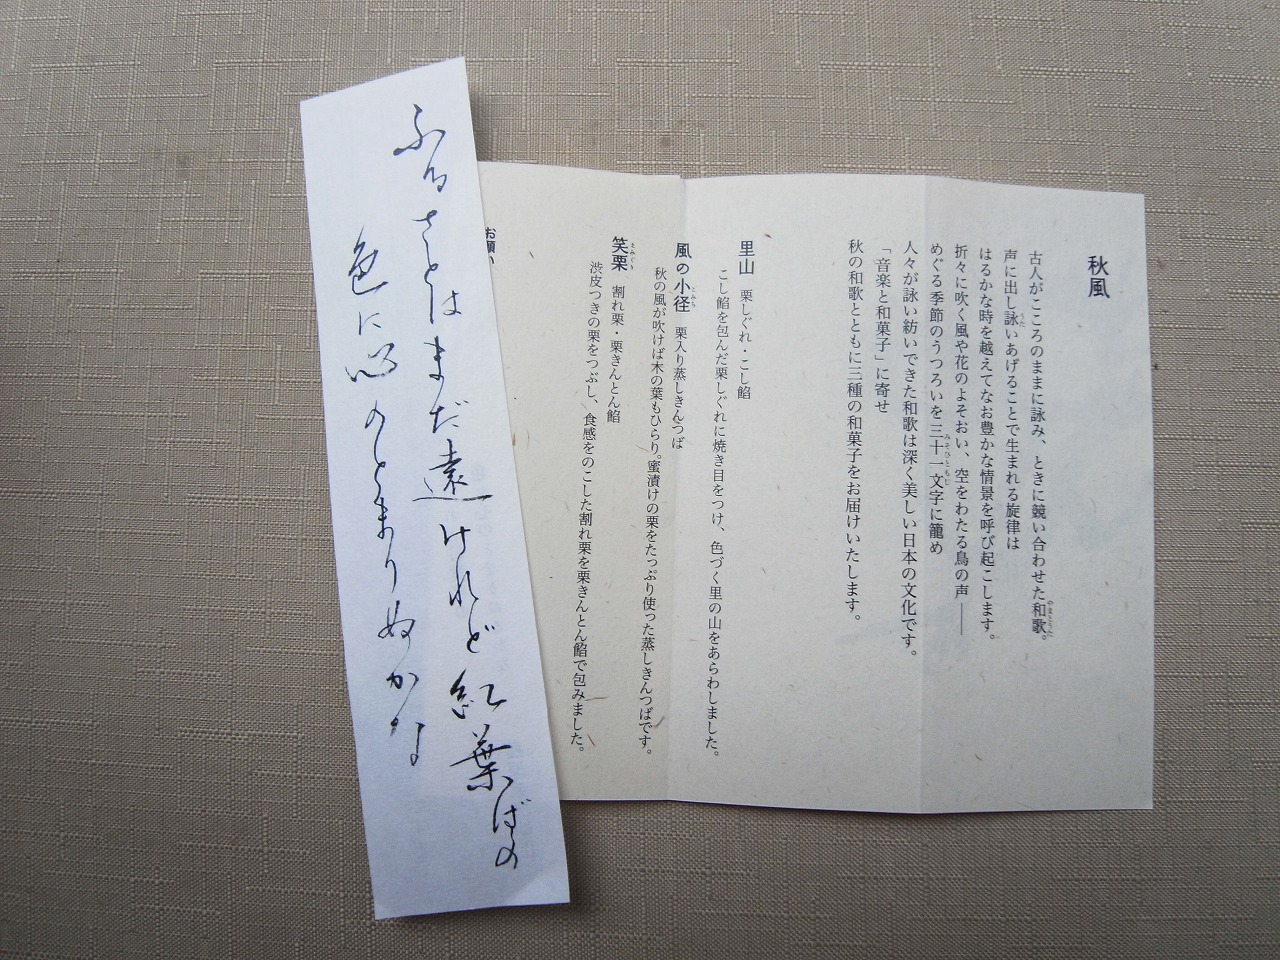 秋風
古人がこころのままに詠み、ときに競い合わせた和歌。
声に出し詠いあげることで生まれる旋律は
はるかな時を越えてなお豊かな情景を呼び起こします。
折々に吹く風や花のよそおい、空をわたる鳥の声――
めぐる季節のうつろいを三十一文字に籠め
人々が詠い紡いできた和歌は深く美しい日本の文化です。
「音楽と和菓子」に寄せ
秋の和歌とともに三種の和菓子をお届けいたします。
里山 栗しぐれ・こし餡
こし餡を包んだ栗しぐれに焼き目をつけ、色づく里の山をあらわしました。
風の小径 栗入り蒸しきんつば
秋の風が吹けば木の葉もひらり。蜜漬けの栗をたっぷり使った蒸しきんつばです。
笑栗 割れ栗・栗きんとん餡
渋皮つきの栗をつぶし、食感をのこした割れ栗を栗きんとん餡で包みました。
お願い
ふるさとはまだ遠けれど紅葉ばの
色に心のとまりぬかな